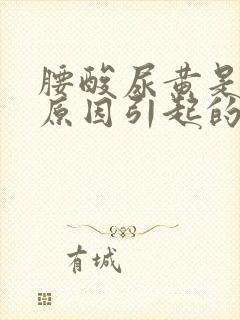 腰酸尿黄是
原因引起的
有城